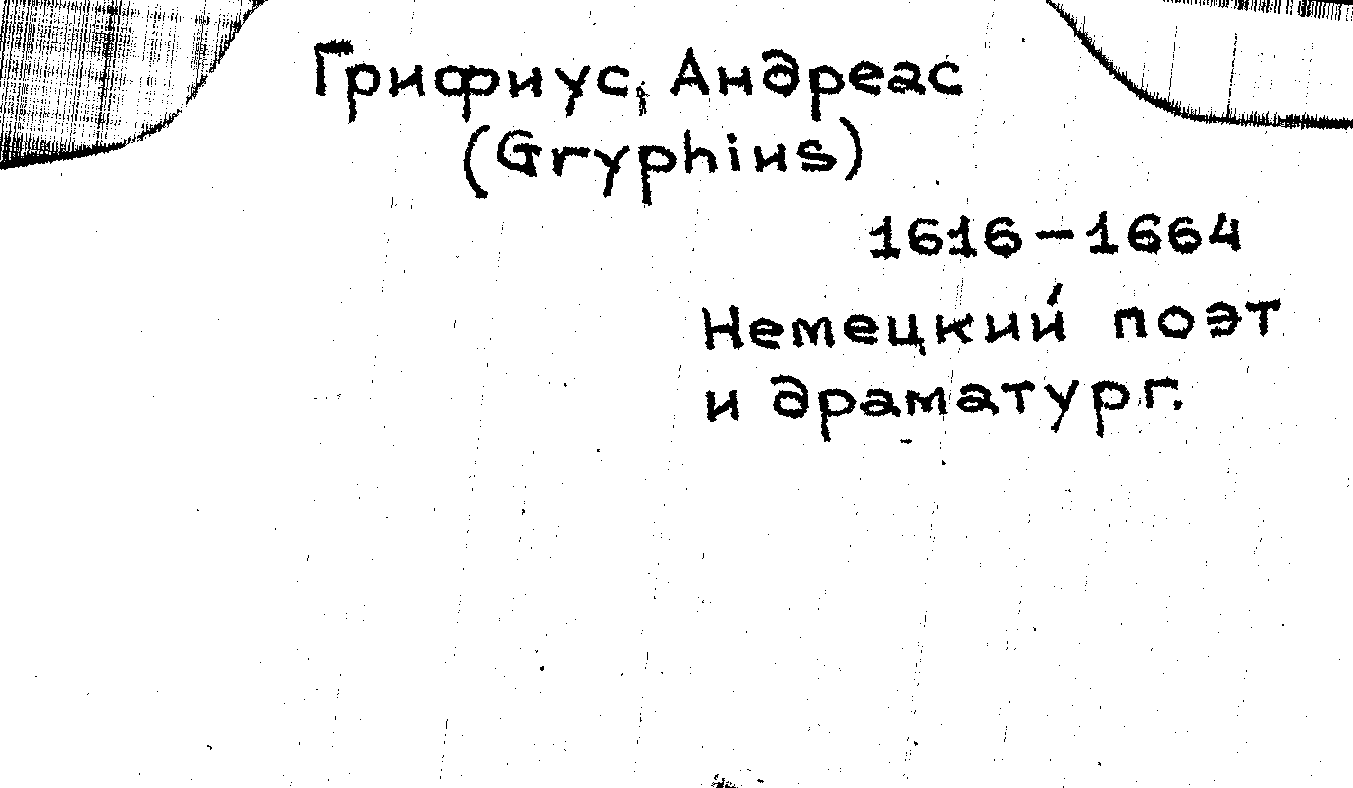 Грифиус, Андреас
(Gryphius)
1616-1664
Немецкий поэт
и драматург.